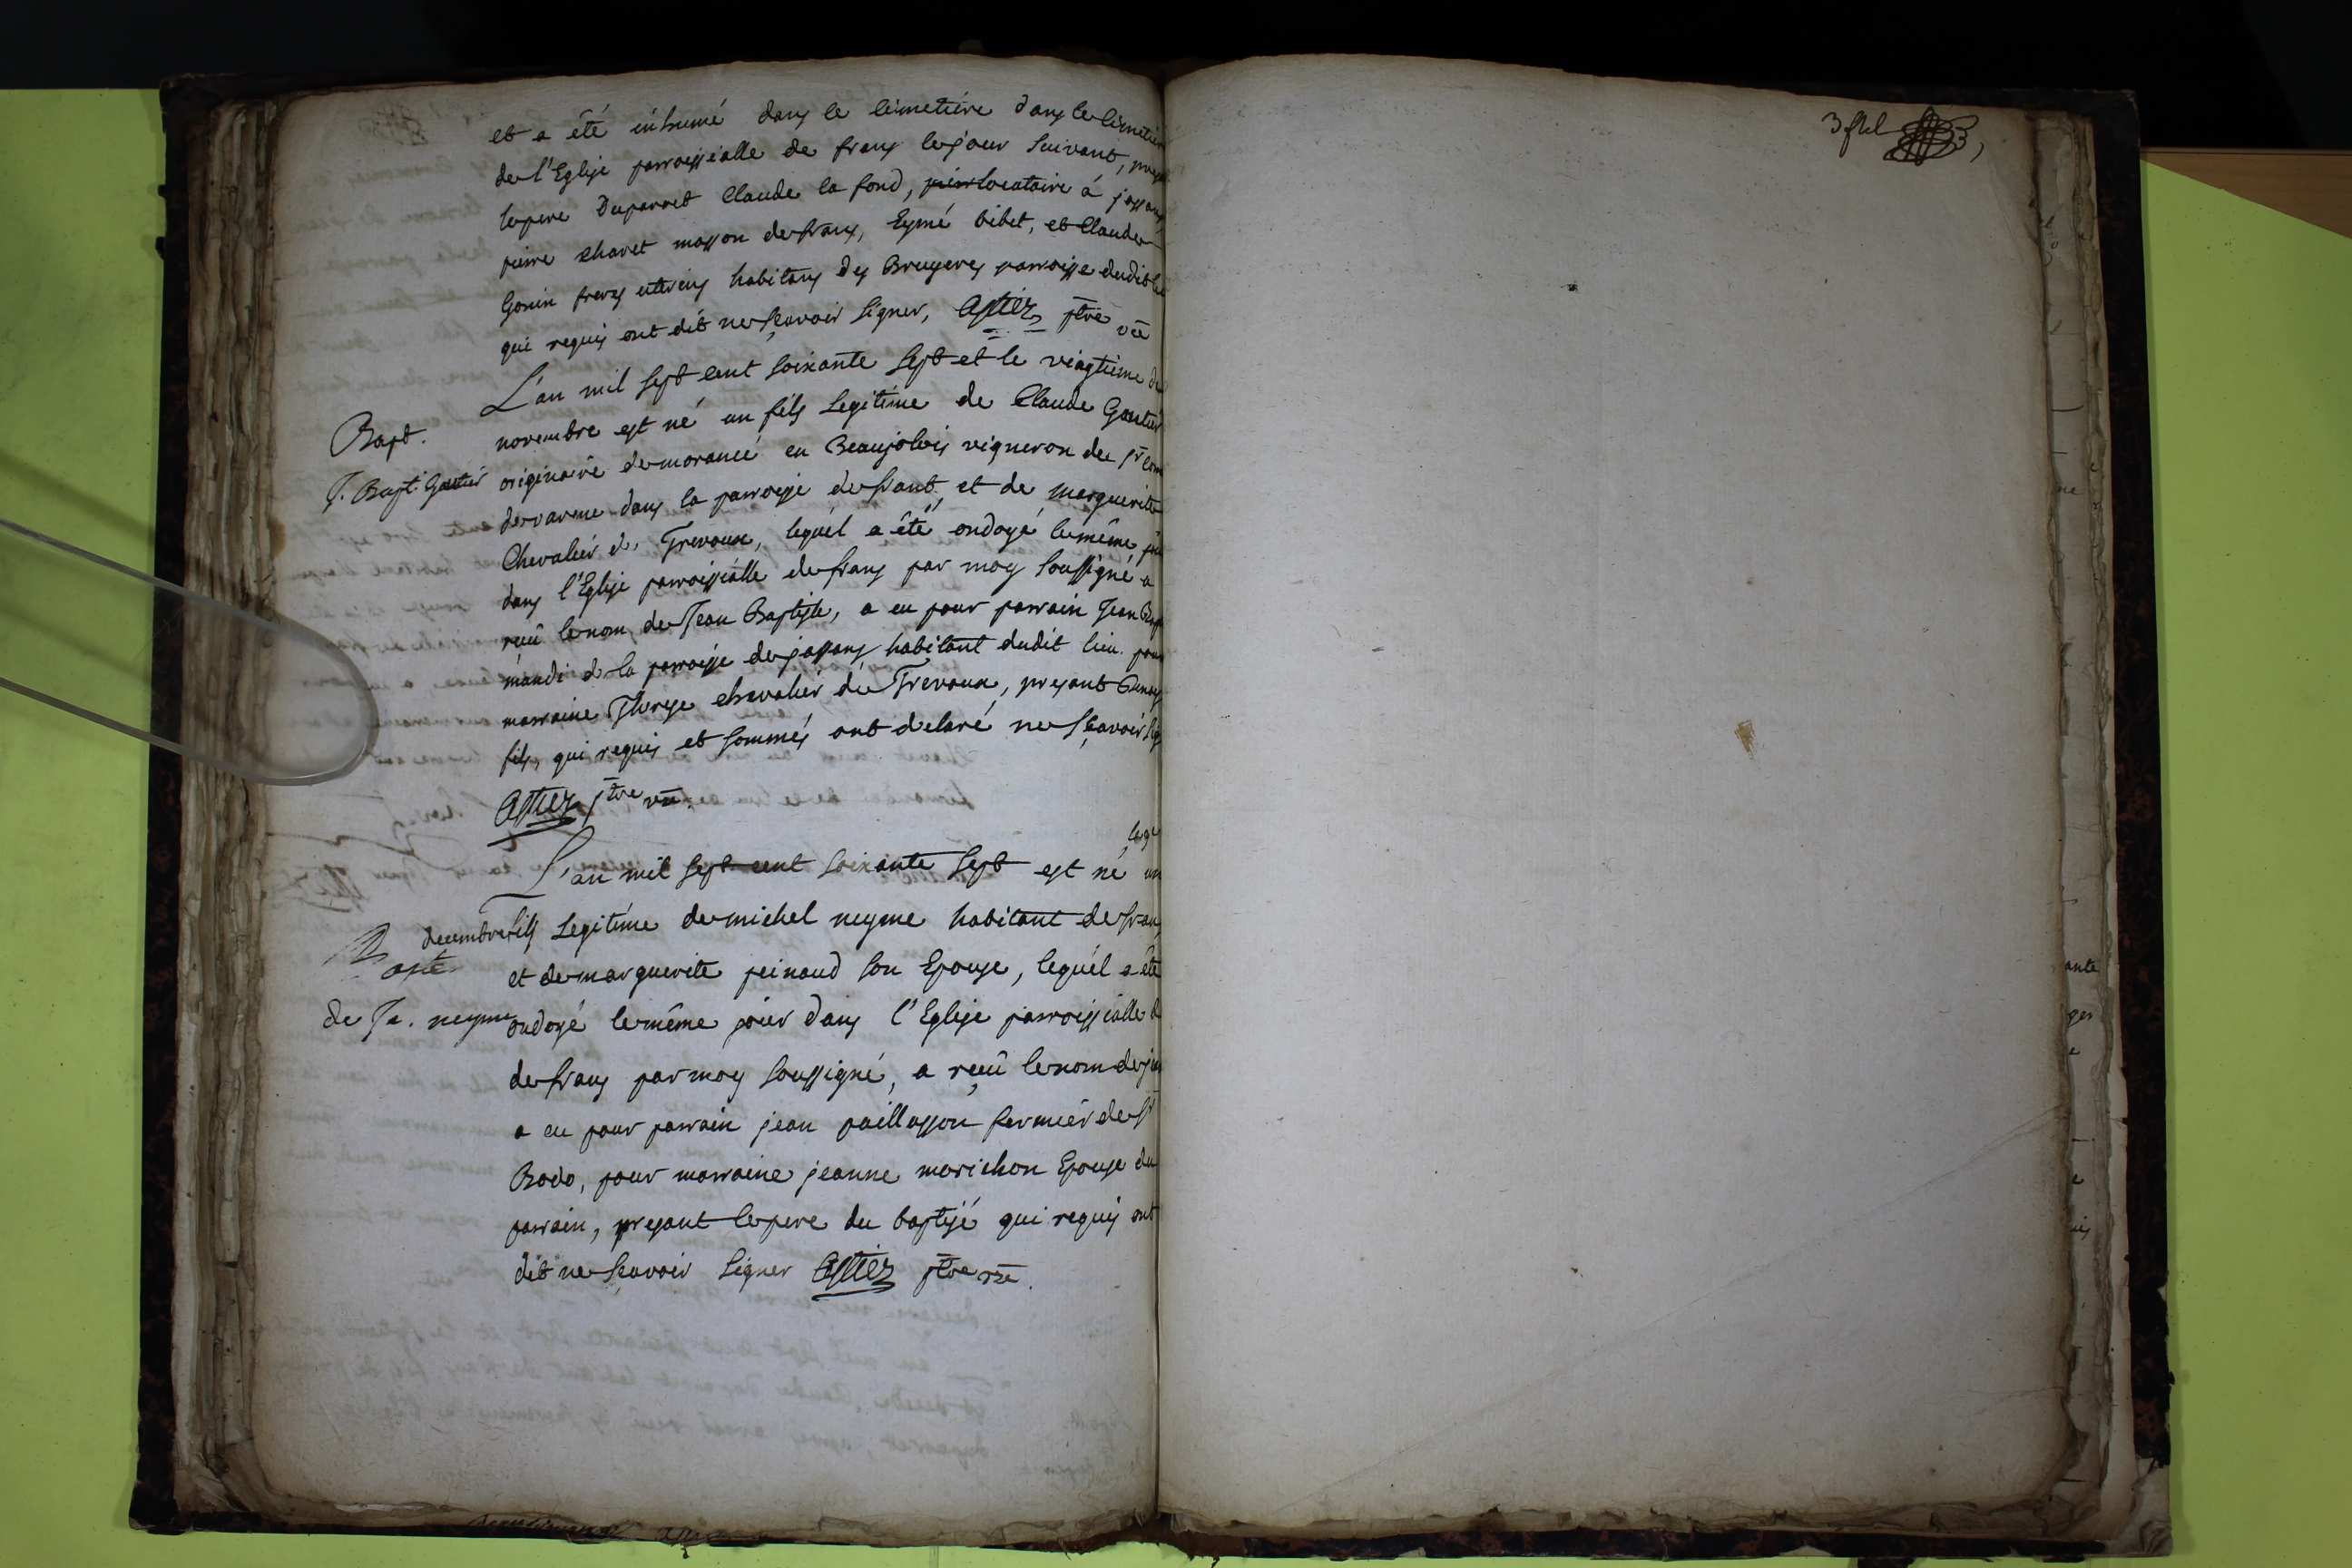 et a été inhumé dans le cimetiére dans le cimetiere
de l'Eglise parroissialle de frans le jour suivant,
le pere Duparret Claude la fond, locataire á jassans
pierre charet masson de frans, Eymé bibet, et Claude
Gonin freres uterins habitans des Bruyeres parroisse dudit
qui requis ont dit ne sçavoir signer, Astier ptre vre
L'an mil sept cent soixante sept et le vingtieme de
novembre est né un fils Legitime de Claude Gautier
originaire de morancé en Beaujolois vigneron de
de varenne dans la parroisse de frant, et de marguerite
Chevaliér de Trevoux, lequel a été ondoyé le même
dans l'Eglise parroissialle de frans par moy soussigné a
reçû le nom de Jean Baptiste, a eu pour parrain Jean
mandi de la parroisse de jassans habitant dudit lieu pour
marraine Therese chevaliér de Trevoux, presant
fils, qui requis et sommés ont declaré ne sçavoir
Astier ptre vre.
Bapt.
J. Bapt. Gautier
L'an mil sept cent soixante sept est né un
decembre fils Legitime de michel neyme habitant de frans
et de marguerite peinaud son Epouse, lequél a été
ondoyé le même jour dans l'Eglise parroissialle de
de frans par moy soussigné, a reçû le nom de
a eu pour parrain jean paillasson fermiér de
Bado, pour marraine jeanne marichon Epouse du
parrain, presant le pere du baptisé qui requis ont
dit ne sçavoir signer Astier ptre vre.
Bapte
de Je. neyme